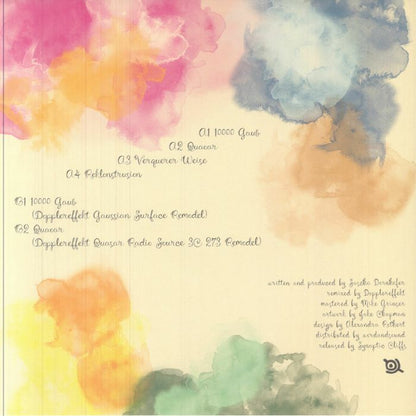 A1 10000 Gaub
A2 Quacar
A3 Verquerer Weise
A4 Reklonstrusion
B1 10000 Gaub
(Dopplereffekt Gaussian Surface Remodel)
B2 Quacar
(Dopplereffekt Quasar Radio Source 3C 273 Remodel)
written and produced by
remixed by Dopplereffekt
mastered by Mike Grinser
artwork by Chapman
design by Alexandra
distributed by wordandsound
released by Synaptic Cliffs